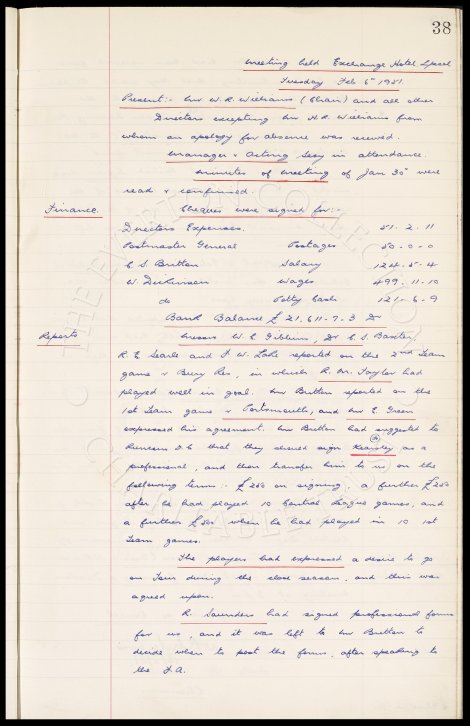 38
Meeting held Exchange Hotel Lpool
Tuesday Feb 6th 1951.
Present:- Mr W. R. Williams (Chair) and all other
Directors excepting Mr N. R. Williams from
whom an apology for absence was received.
Manager & Acting Secy in attendance.
Minutes of Meeting of Jan 30th were
read & confirmed.
Finance. Cheques were signed for:-
Directors Expenses. 51. 2. 11
Postmaster General Postages 50. 0. 0
C. S. Britton Salary 124. 5. 4
W. Dickinson Wages 499. 11. 10
do Petty Cash 121. 6. 9
Bank Balance £21,611-7-3 Dr
Reports Messrs W. C. Gibbins, Dr C. S. Baxter,
R. E. Searle and F. W. Lake reported on the 2nd Team
game v Bury Res, in which R. M. Taylor had
played well in goal. Mr Britton reported on the
1st Team game v Portsmouth, and Mr E. Green
expressed his agreement. Mr Britton had suggested to
Runcorn F.C. that they should sign Kearsley as a
professional, and then transfer him to us, on the
following terms:- £250 on signing, a further £250
after he had played 10 Central League games, and
a further £500 when he had played in 10 1st
Team games.
The players had expressed a desire to go
on Tour during the close season, and this was
agreed upon.
R. Saunders had signed professional forms
for us, and it was left to Mr Britton to
decide when to post the forms, after speaking to
the F.A.
THE EVERTON COLLECTION